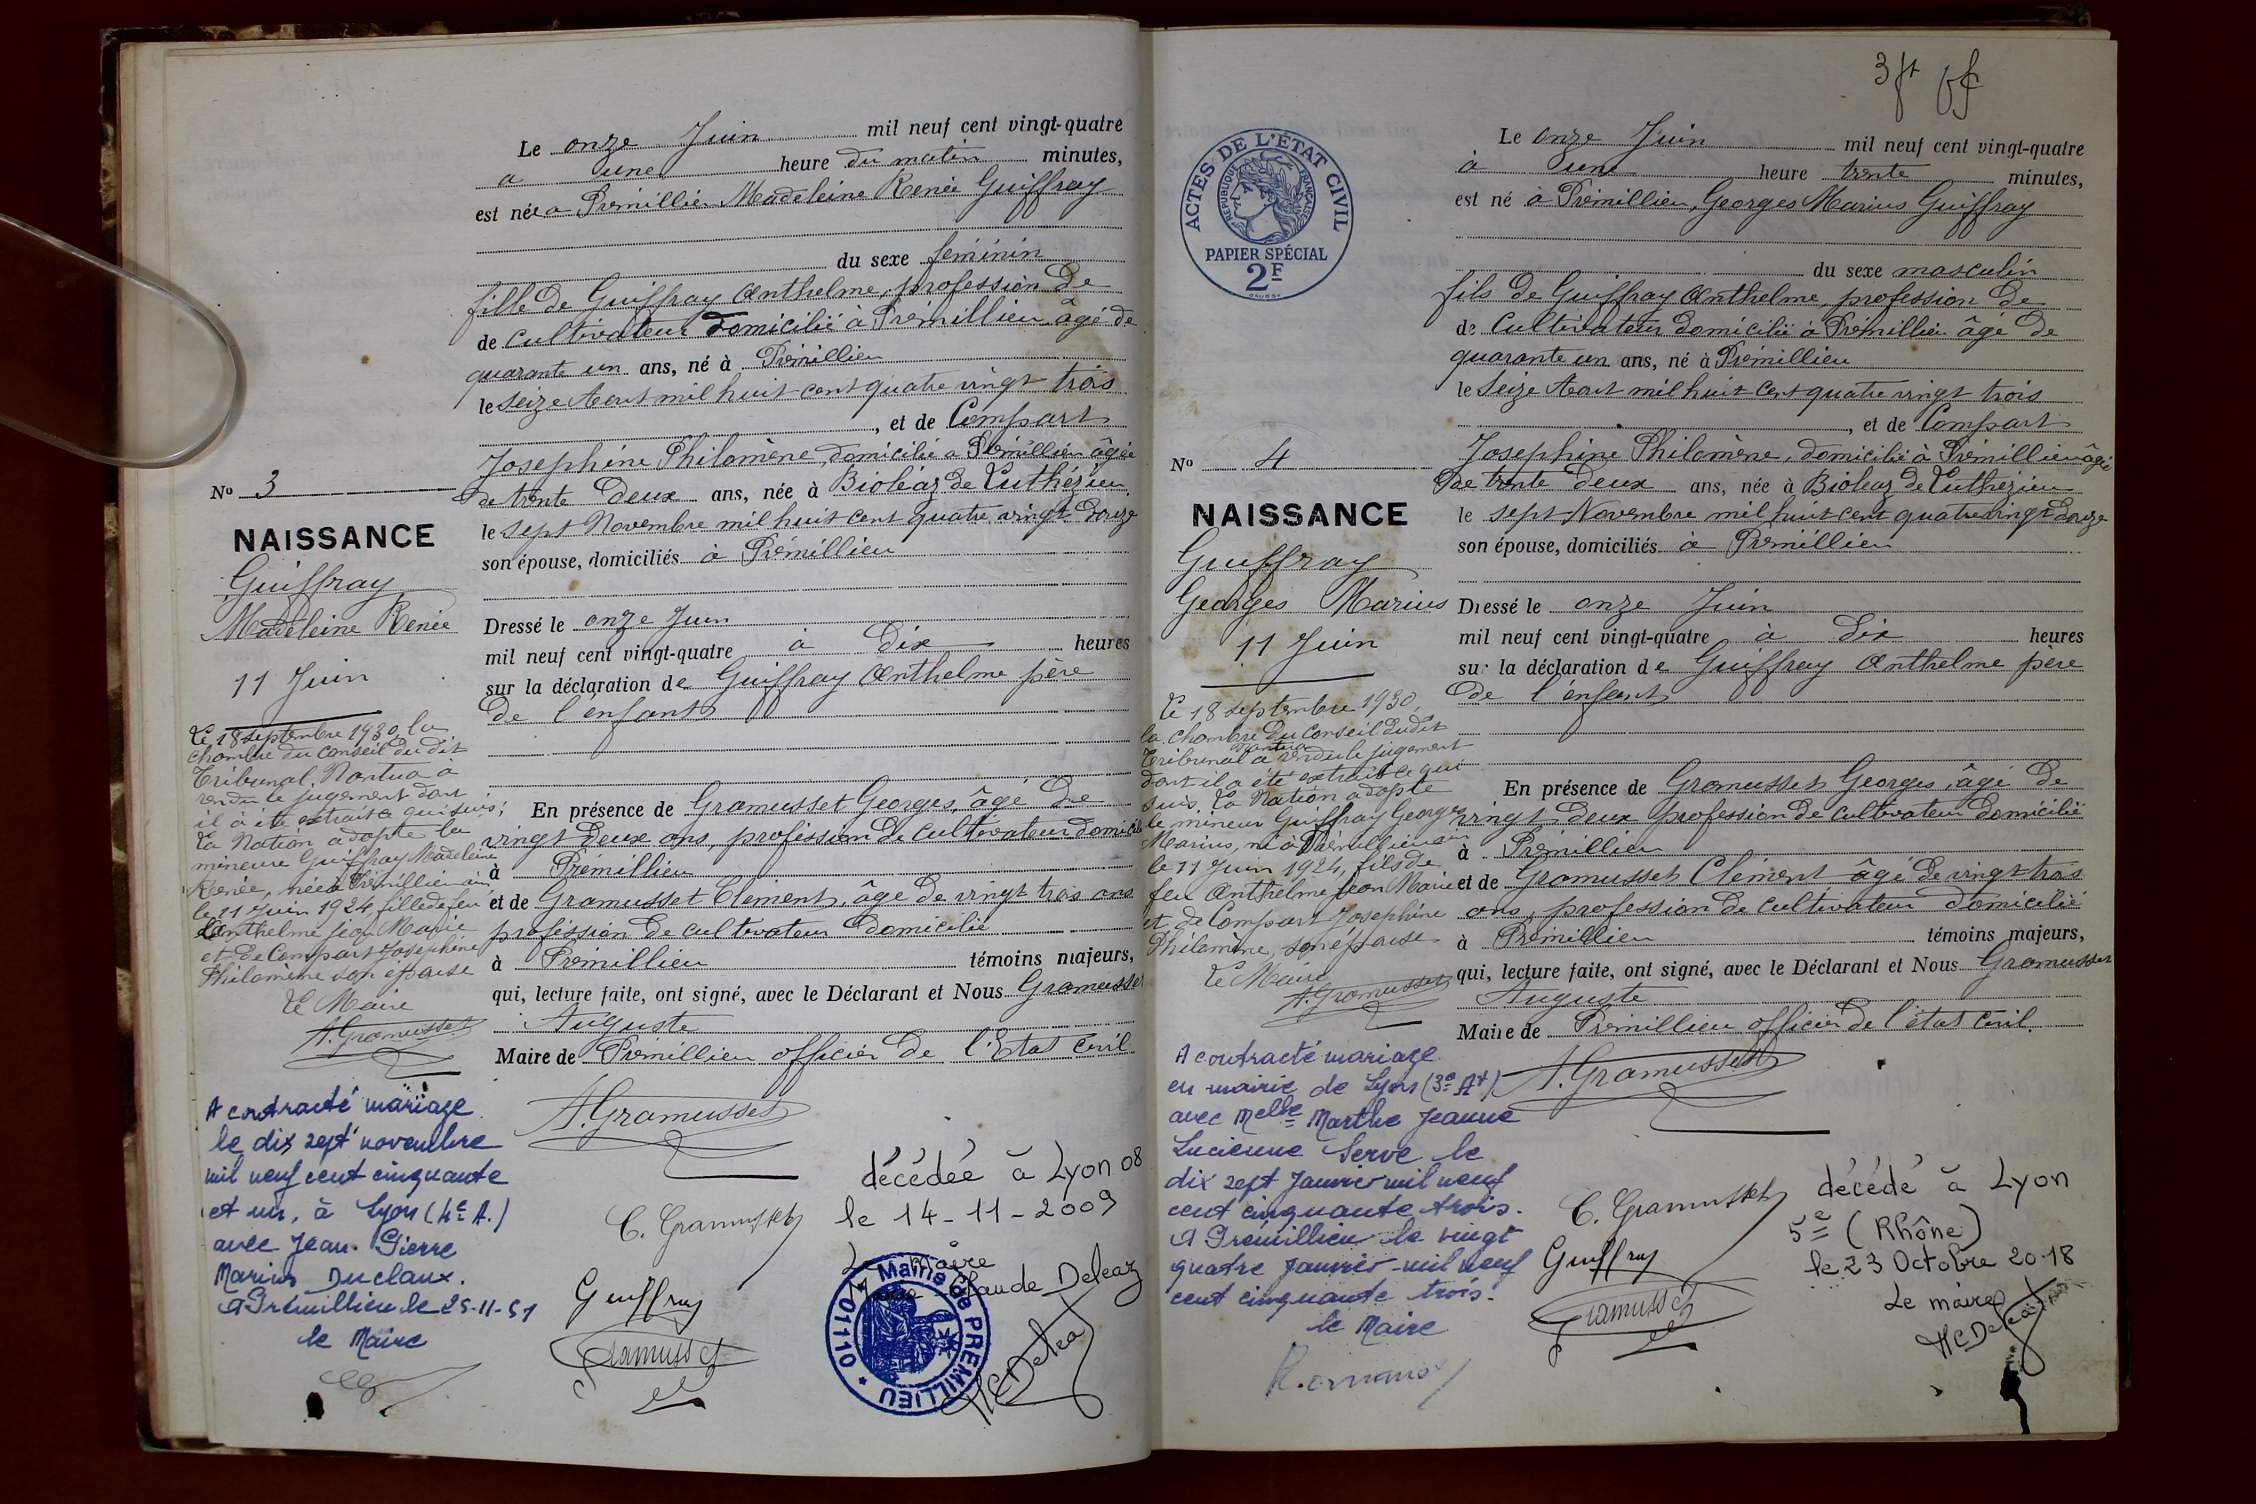 Le onze Juin mil neuf cent vingt-quatre
a une heure du matin minutes,
est née a Prémillieu Madeleine Renée Guiffray
du sexe féminin
fille de Guiffray Anthelme, profession de
de cultivateur domicilié à Prémillieu âgé de
quarante un ans, né à Prémillieu
le seize Aout mil huit cent quatre vingt trois
, et de Compart
Josephine Philomène, domicilié a Prémillieu âgée
de trente deux ans, née à Bioléaz de Luthézieu
le sept Novembre mil huit cent quatre vingt douze
son épouse, domiciliés à Prémillieu
Dressé le onze Juin
mil neuf cent vingt-quatre à Dix heures
sur la déclaration de Guiffray Anthelme père
de l'enfant
En présence de Gramusset Georges, âgé de
vingt deux ans, profession de cultivateur domicilié
à Prémillieu
et de Gramusset Clément, âge de vingt trois ans
profession de cultivateur domicilié
à Prémillieu témoins majeurs,
qui, lecture faite, ont signé, avec le Déclarant et Nous Gramusset
Auguste
Maire de Prémillieu officier de l'Etat civil
A. Gramusset
C. Gramusset
Guiffray
Gramusset
décédée à Lyon 08
le 14-11-2009
Le Maire
Marie-Claude Deleaz
Mairie de PREMILLIEU * 01110 *
MCDeleaz
No 3
NAISSANCE
Guiffray
Madeleine Renée
11 Juin
Le 18 septembre 1930, la
chambre du conseil du dit
Tribunal, Nantua à
rendu le jugement dont
il à été extrait ce qui suis;
La Nation adopte la
mineure Guiffray Madeleine
Renée, née à Prémillieu ain
le 11 Juin 1924, fille de feu
Anthelme jean Marie
et de Compart Josephine
Philomène son épouse
Le Maire
A. Gramusset
A contracté mariage
le dix sept novembre
mil neuf cent cinquante
et un, à Lyon (4e A.)
avec Jean-Pierre
Marius Duclaux.
A Prémillieu le 25-11-51
le Maire
3ft
ACTES DE L'ÉTAT CIVIL
RÉPUBLIQUE FRANÇAISE
PAPIER SPÉCIAL
2F
Le onze Juin mil neuf cent vingt-quatre
à une heure trente minutes,
est né à Prémillieu, Georges Marius Guiffray
du sexe masculin
fils de Guiffray Anthelme, profession de
de Cultivateur domicilié à Prémillieu âgé de
quarante un ans, né à Prémillieu
le Seize Aout mil huit cent quatre vingt trois
, et de Compart
Josephine Philomène, domicilié à Prémillieu âgée
De trente deux ans, née à Bioleaz de Luthezieu
le sept Novembre mil huit cent quatre vingt douze
son épouse, domiciliés à Prémillieu
Dressé le onze Juin
mil neuf cent vingt-quatre à dix heures
sur la déclaration de Guiffray Anthelme père
de l'enfant
En présence de Gramusset Georges, âgé de
vingt deux profession de cultivateur domicilié
à Prémillieu
et de Gramusset Clément âgé de vingt trois
ans, profession de cultivateur domicilié
à Prémillieu témoins majeurs,
qui, lecture faite, ont signé, avec le Déclarant et Nous Gramusset
Auguste
Maire de Prémillieu officier de l'état civil.
A. Gramusset
C. Gramusset
Guiffray
Gramusset
décédé à Lyon
5e (Rhône)
le 23 Octobre 2018
Le maire
MCDeleaz
No 4
NAISSANCE
Guiffray
Georges Marius
11 Juin
Le 18 septembre 1930,
la chambre du Conseil dudit
Tribunal Nantua a rendu le jugement
dont il a été extrait ce qui
suis. La Nation adopte
le mineur Guiffray Georges
Marius, né à Prémillieu ain
le 11 Juin 1924, fils de
feu Anthelme Jean Marie
et de Compart Josephine
Philomène, son épouse
Le Maire
A. Gramusset
A contracté mariage
en mairie de Lyon (3e At)
avec Melle Marthe Jeanne
Lucienne Serve le
dix sept Janvier mil neuf
cent cinquante trois.
A Prémillieu le vingt
quatre Janvier mil neuf
cent cinquante trois.
le Maire